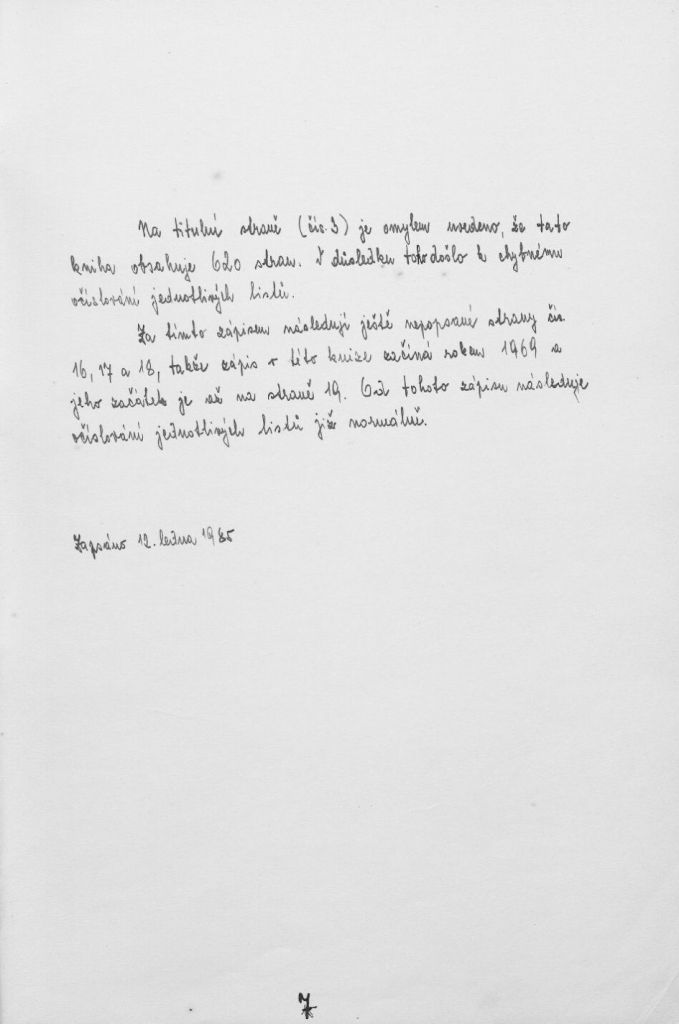 Na titulní straně (čís. 3) je omylem uvedeno, že tato
kniha obsahuje 620 stran. V důsledku toho došlo k chybnému
očíslování jednotlivých listů.
Za tímto zápisem následují ještě nepopsané strany čís.
16, 17 a 18, takže zápis v této knize začíná rokem 1969 a
jeho začátek je až na straně 19. Od tohoto zápisu následuje
očíslování jednotlivých listů již normálně.
Zapsáno 12. ledna 1985
7